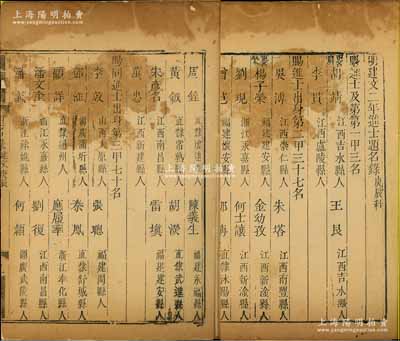 上海陽明拍賣
明建文二年進士題名錄庚辰科
賜進士及第第一甲三名
胡靖 江西吉水縣人 王艮 江西吉水縣人
李貫 江西廬陵縣人
賜進士出身第二甲三十七名
吳溥 江西崇仁縣人 朱塔 江西南豐縣人
楊子榮 福建建安縣人 金幼孜 江西新淦縣人
劉現 浙江永嘉縣人 何士讓 江西新淦縣人
福建懷安縣人 直隸沭陽縣人
周銓 陳義生 福建永福縣人
黃鉞 直隸常熟縣人 胡濙 直隸武進縣人
朱彥名 江西新建縣人 雷塤 福建建安縣人
賜同進士出身第三甲七十名
李敦 山西太原縣人 張聰 福建閩縣人
秦鳳 直隸舒城縣人
顧詳 直隸通州人 應履平 浙江奉化縣人
潘文奎 浙江永嘉縣人 劉復 江西南昌縣人
浙江縉雲縣人 何穎 湖廣武陵縣人
上海陽明拍賣